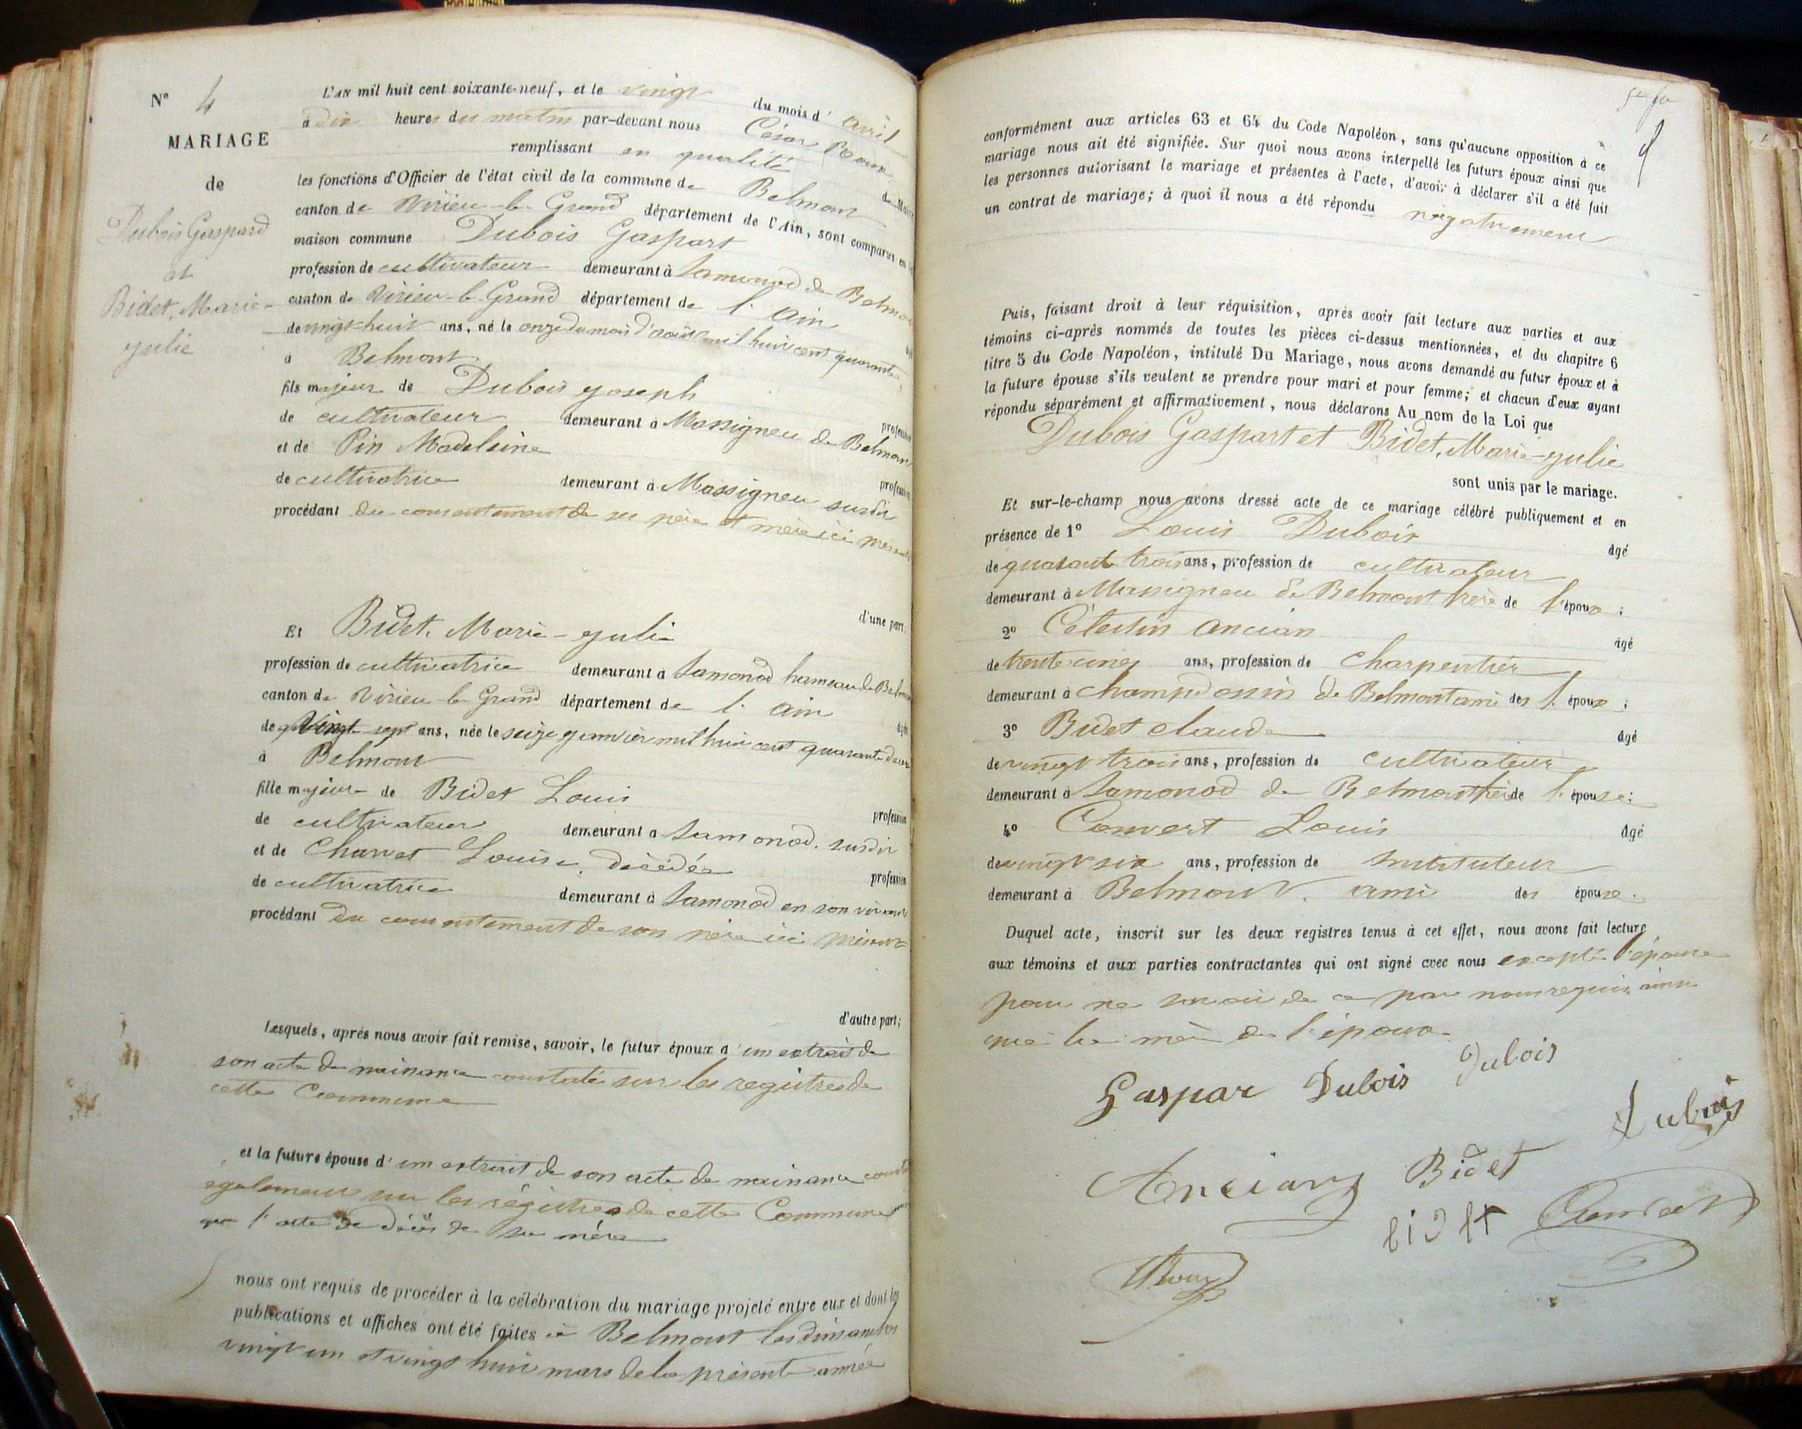 N° 4
MARIAGE
de
Dubois Gaspard
et
Bidet, Marie-
julie
L'AN mil huit cent soixante-neuf, et le vingt du mois d'avril
à dix heures du matin par-devant nous César Roux
remplissant en qualité de Maire
les fonctions d'Officier de l'état civil de la commune de Belmont
canton de Virieu-le-Grand département de l'Ain, sont comparus en la
maison commune Dubois Gaspart
profession de cultivateur demeurant à Samonod de Belmont
canton de Virieu-le-Grand département de l'ain
de vingt-huit ans, né le onze du mois d'août mil huit cent quarante,
à Belmont
fils majeur de Dubois joseph profession
de cultivateur demeurant à Massigneu de Belmont
et de Pin Madeleine profession
de cultivatrice demeurant à Massigneu susdit
procédant du consentement de ses père et mère ici présents
d'une part,
Et Bidet, Marie-julie
profession de cultivatrice demeurant à Samonod hameau de Belmont
canton de Virieu-le-Grand département de l'ain
de vingt-sept ans, née le seize janvier mil huit cent quarante deux
à Belmont
fille majeure de Bidet Louis profession
de cultivateur demeurant à Samonod susdit
et de Charvet Louise, décédée profession
de cultivatrice demeurant à Samonod en son vivant
procédant du consentement de son père ici présent
d'autre part;
Lesquels, après nous avoir fait remise, savoir, le futur époux d'un extrait de
son acte de naissance constaté sur les registres de
cette Commune
et la future épouse d'un extrait de son acte de naissance
également sur les régistres de cette Commune
l'acte de décès de sa mère
nous ont requis de procéder à la célébration du mariage projeté entre eux et dont les
publications et affiches ont été faites à Belmont les dimanches
vingt un et vingt huit mars de la présente année
conformément aux articles 63 et 64 du Code Napoléon, sans qu'aucune opposition à ce
mariage nous ait été signifiée. Sur quoi nous avons interpellé les futurs époux ainsi que
les personnes autorisant le mariage et présentes à l'acte, d'avoir à déclarer s'il a été fait
un contrat de mariage; à quoi il nous a été répondu négativement
Puis, faisant droit à leur réquisition, après avoir fait lecture aux parties et aux
témoins ci-après nommés de toutes les pièces ci-dessus mentionnées, et du chapitre 6
titre 5 du Code Napoléon, intitulé Du Mariage, nous avons demandé au futur époux et à
la future épouse s'ils veulent se prendre pour mari et pour femme; et chacun d'eux ayant
répondu séparément et affirmativement, nous déclarons Au nom de la Loi que
Dubois Gaspart et Bidet, Marie-julie
sont unis par le mariage.
Et sur-le-champ nous avons dressé acte de ce mariage célébré publiquement et en
présence de 1° Louis Dubois âgé
de quarante trois ans, profession de cultivateur
demeurant à Massigneu de Belmont frère de l'époux;
2° Célestin Ancian âgé
de trente cinq ans, profession de charpentier
demeurant à champdossin de Belmont ami des époux;
3° Bidet claude âgé
de vingt trois ans, profession de cultivateur
demeurant à Samonod de Belmont frère de l'épouse;
4° Convert Louis âgé
de vingt six ans, profession de Instituteur
demeurant à Belmont. ami des époux.
Duquel acte, inscrit sur les deux registres tenus à cet effet, nous avons fait lecture
aux témoins et aux parties contractantes qui ont signé avec nous excepté l'épouse
pour ne savoir de ce par nous requise ainsi
que la mère de l'époux.
Gaspar Dubois Dubois
Dubois
Ancian Bidet
bidet Convert
Roux